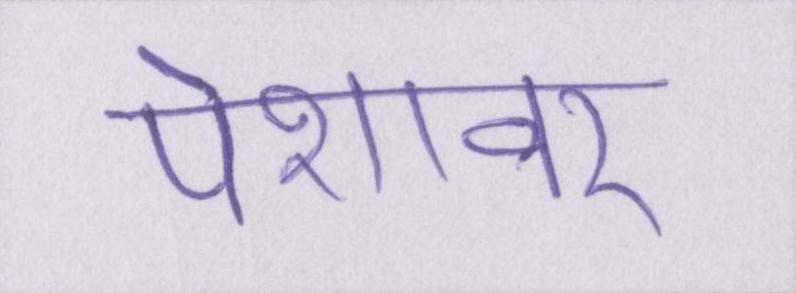 पेशावर